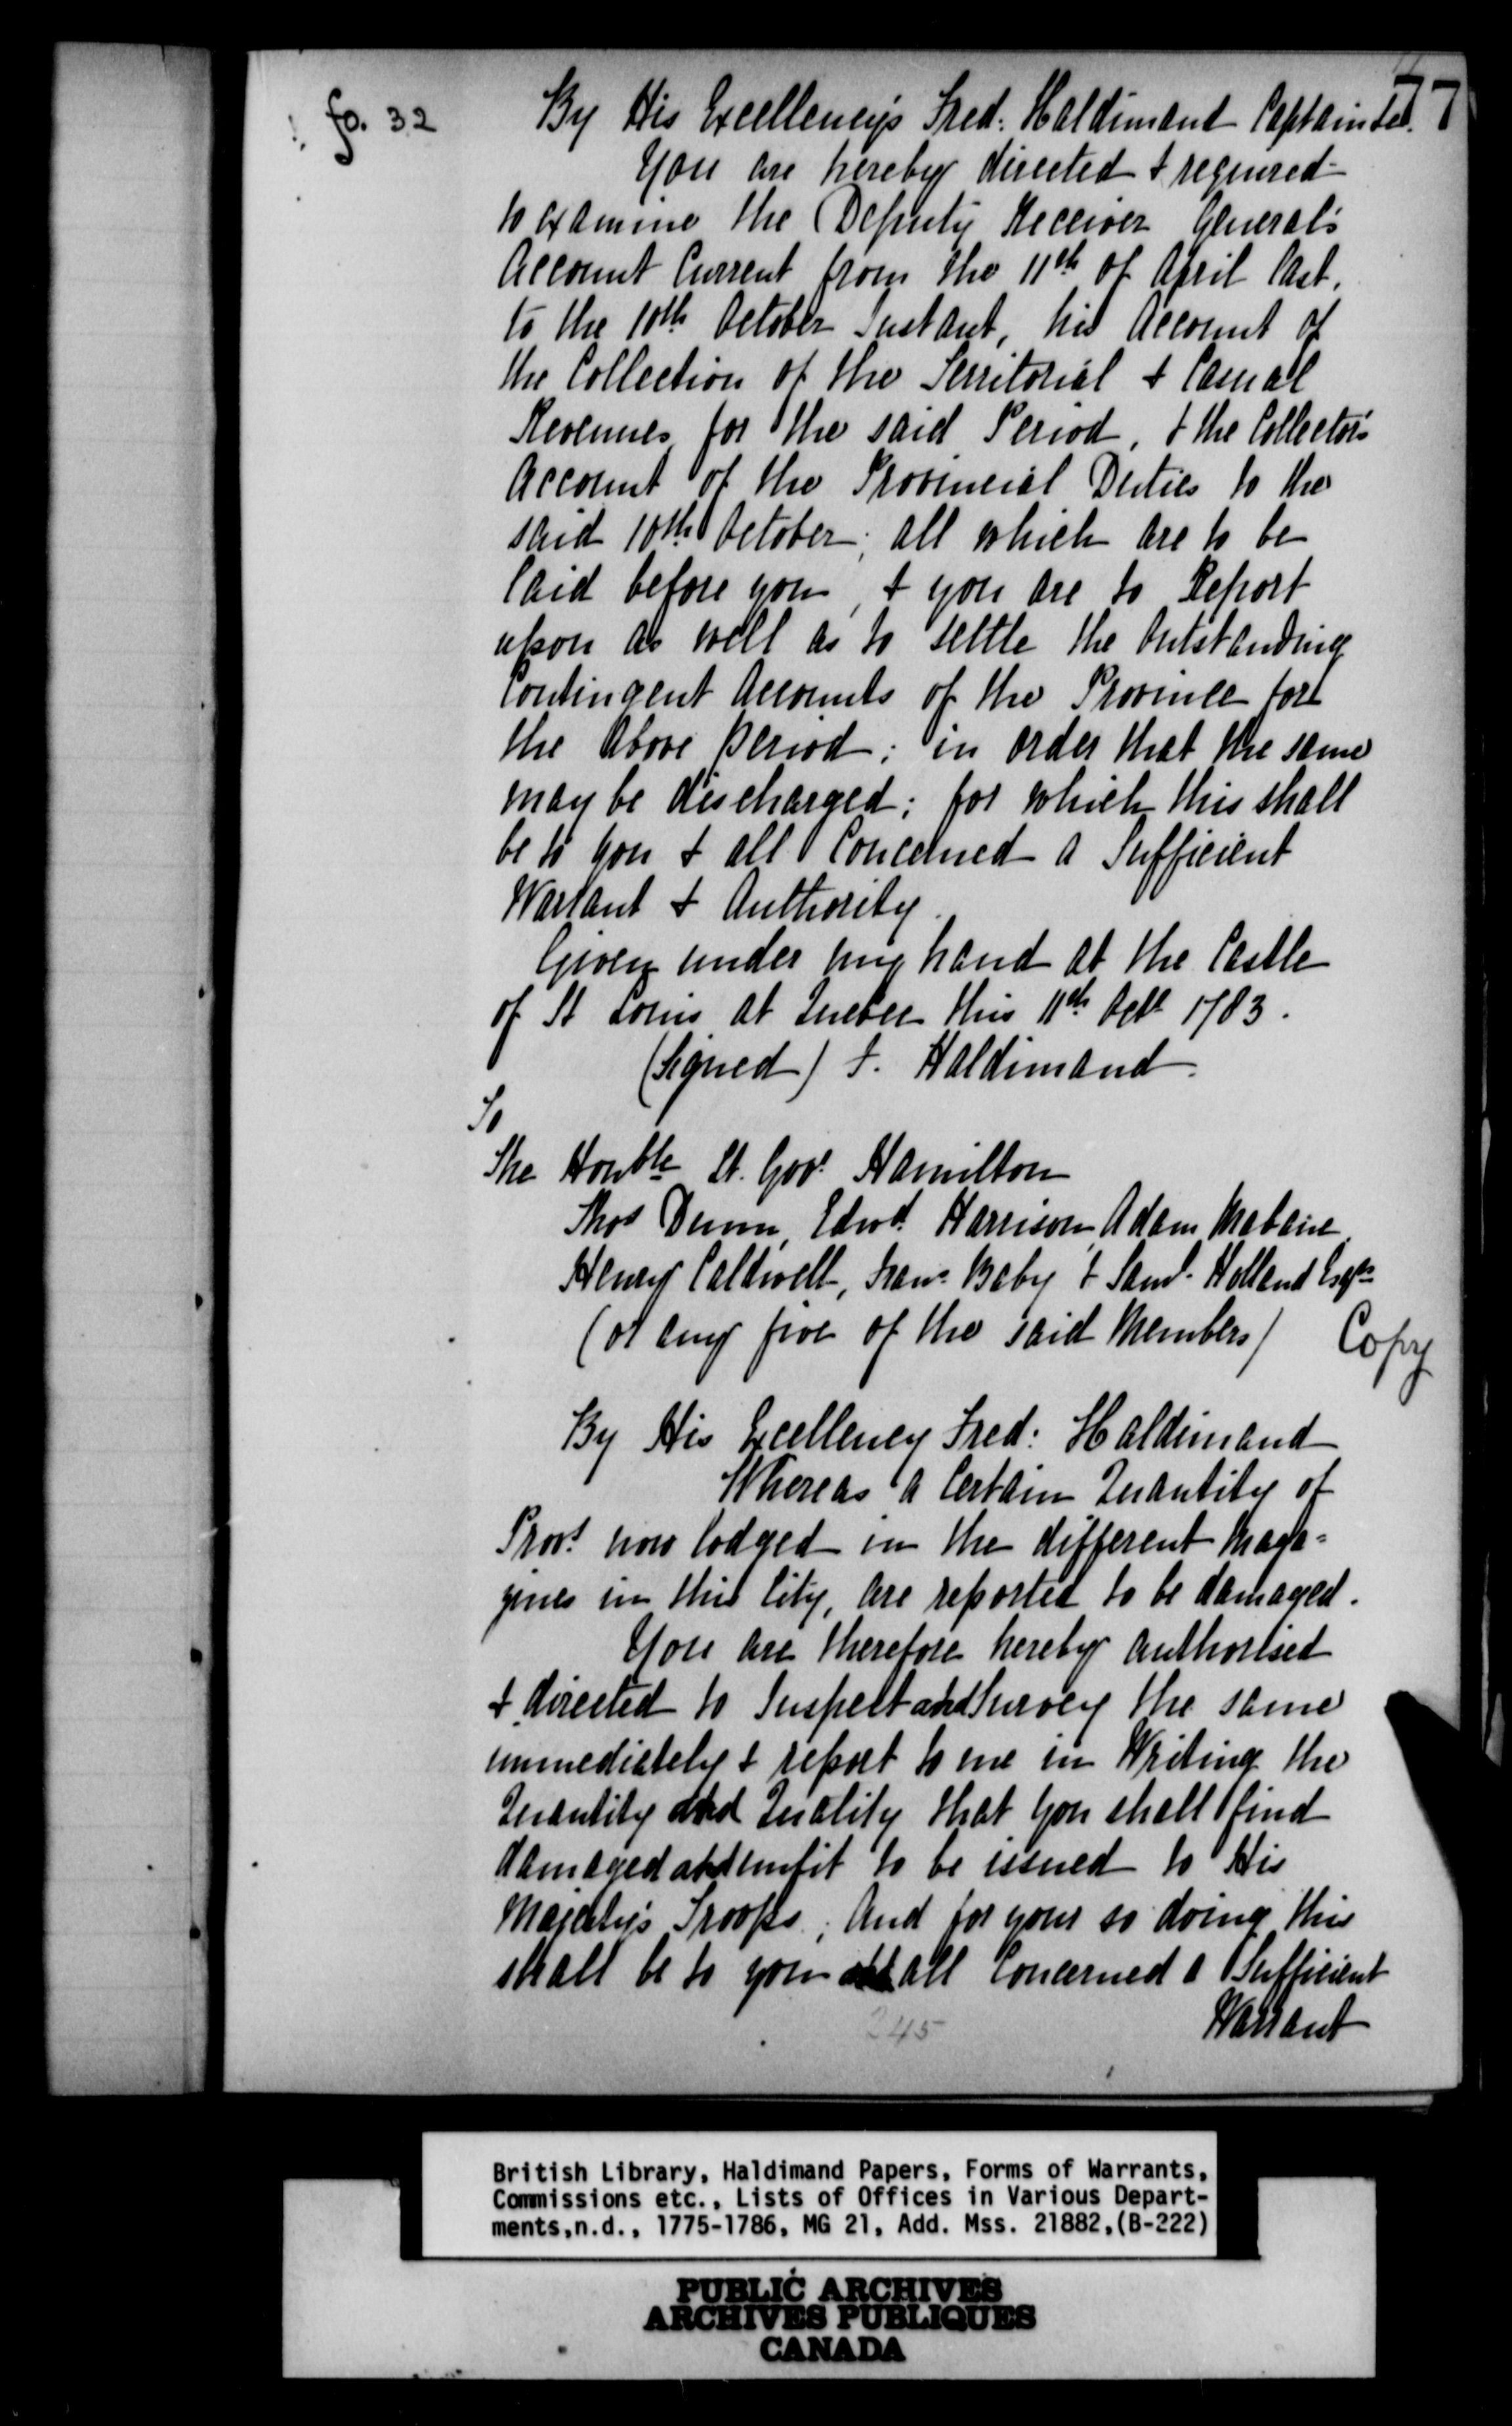 77
fo. 32
By His Excellency's Fred: Haldimand Captain &c.
You are hereby directed & required
to examine the Deputy Receiver General's
Account Current from the 11th of April last,
to the 10th October Instant, his Account of
the Collection of the Territorial & Casual
Revenues for the said Period, & the Collector's
Account of the Provincial Duties to the
said 10th October; all which are to be
laid before you, & you are to Report
upon as well as to settle the Outstanding
Contingent Accounts of the Province for
the above period; in order that the same
may be discharged; for which this shall
be to you & all Concerned a Sufficient
Warrant & Authority.
Given under my hand at the Castle
of St Louis at Quebec this 11th Octr 1783.
(Signed) F. Haldimand
To
The Honble Lt. Govr Hamilton
Thos Dunn, Edwd. Harrison, Adam Mabane,
Henry Caldwell, Frans. Baby & Saml. Holland Esqrs
(or any five of the said Members) Copy
By His Excellency Fred: Haldimand
Whereas a Certain Quantity of
Provs now lodged in the different Maga=
zines in this City, are reported to be damaged.
You are therefore hereby authorised
& directed to Inspect and Survey the same
immediately & report to me in Writing the
Quantity and Quality that you shall find
damaged and unfit to be issued to His
Majesty's Troops; And for your so doing this
shall be to you all concerned a Sufficient
Warrant
245
British Library, Haldimand Papers, Forms of Warrants,
Commissions etc., Lists of Offices in Various Depart-
ments,n.d., 1775-1786, MG 21, Add. Mss. 21882,(B-222)
PUBLIC ARCHIVES
ARCHIVES PUBLIQUES
CANADA